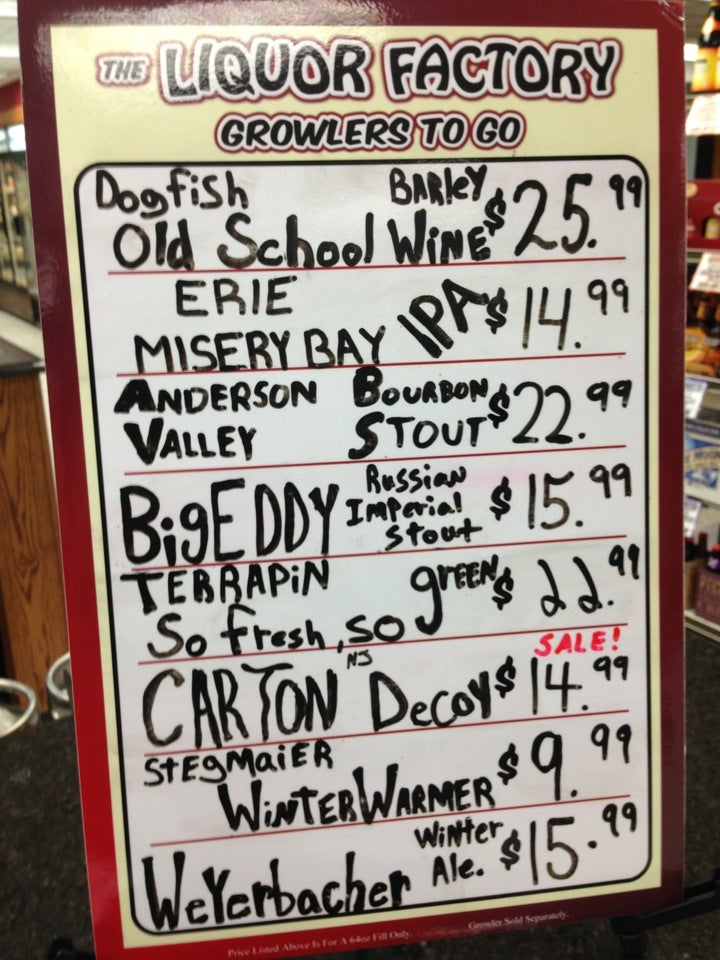 THE LIQUOR FACTORY
GROWLERS TO GO
Dogfish BARleY
Old School WINE $25.99
ERIE
MISERY BAY IPA $14.99
ANDERSON BOURBON
VALLEY STOUT $22.99
BigEDDY Russian Imperial Stout $15.99
TERRAPiN green $22.99
So fresh, so
SALE!
CARTON NJ Decoy $14.99
StEgMaiER
WiNTER WARMER $9.99
Weyerbacher Winter Ale. $15.99
Price Listed Above Is For A 64oz Fill Only.
Growler Sold Separately.